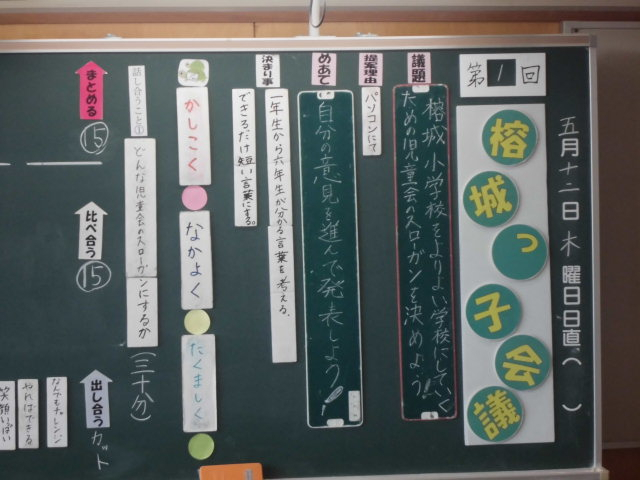 五月十二日木曜日日直（　）
第1回
榕城っ子会議
議題
榕城小学校をよりよい学校にしていく
ための児童会のスローガンを決めよう!!
提案理由
パソコンにて
めあて
自分の意見を進んで発表しよう!
決まり事
一年生から六年生が分かる言葉を考える。
できるだけ短い言葉にする。
かしこく
なかよく
たくましく
話し合うこと①
どんな児童会のスローガンにするか
(三十分)
まとめる
⑮
比べ合う
⑮
出し合う
カット
なんでもチャレンジ
やればできる
笑顔いっぱい